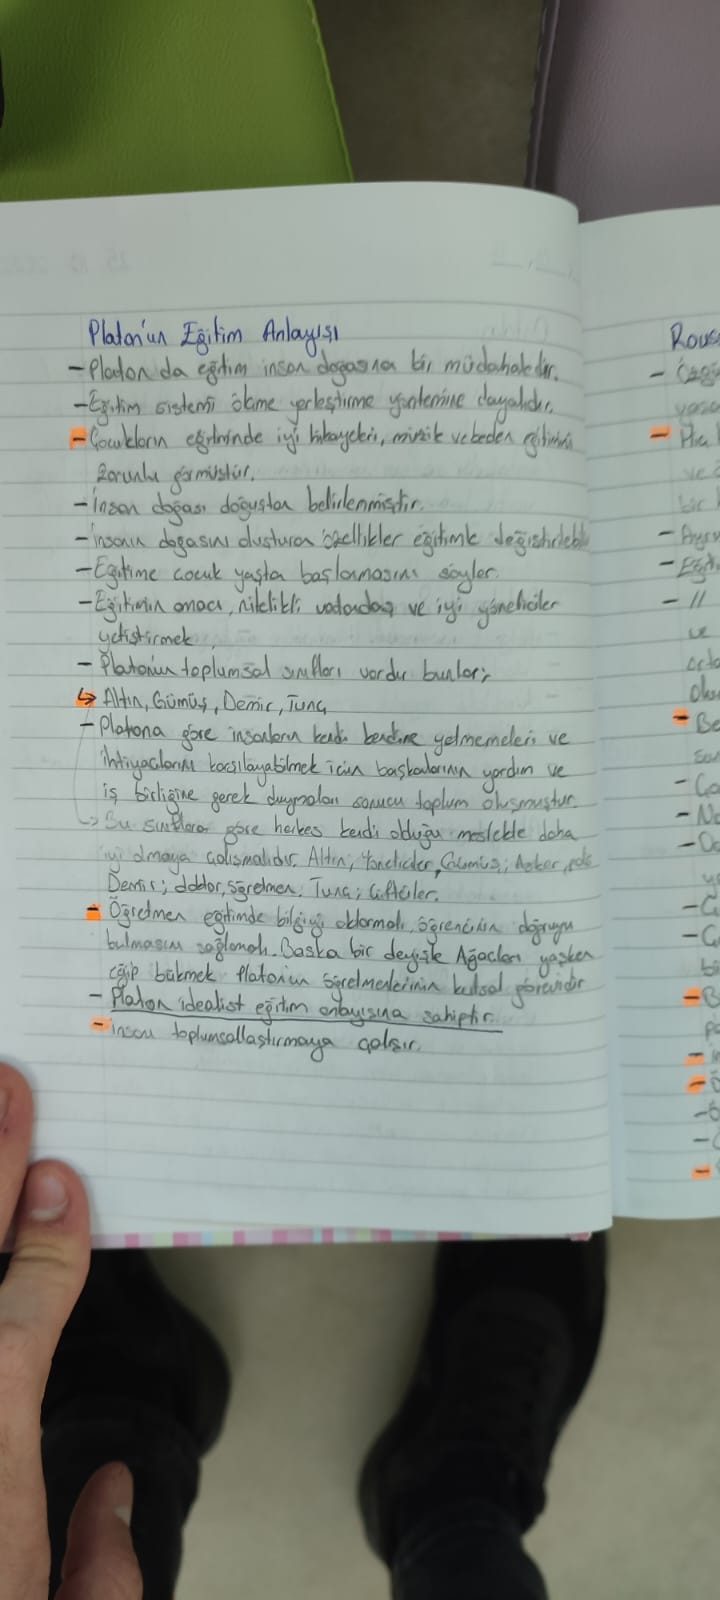 Platon'un Eğitim Anlayışı
- Platon da eğitim insan doğasına bir müdahaledir.
- Eğitim sistemi ölçme yerleştirme yöntemine dayalıdır.
- Çocukların eğitiminde iyi hikayeleri, müzik ve beden eğitimini
zorunlu görmüştür.
- İnsan doğası doğuştan belirlenmiştir.
- İnsanın doğasını oluşturan özellikler eğitimle değiştirilebilir
- Eğitime çocuk yaşta başlanmasını söyler.
- Eğitimin amacı, nitelikli vatandaş ve iyi yöneticiler
yetiştirmek.
- Platon'un toplumsal sınıfları vardır bunlar;
↳ Altın, Gümüş, Demir, Tunç
- Platona göre insanların kendi kendine yetmemeleri ve
ihtiyaçlarını karşılayabilmek için başkalarının yardım ve
iş birliğine gerek duymaları sonucu toplum oluşmuştur.
↳ Bu sınıflara göre herkes kendi olduğu meslekte daha
iyi olmaya çalışmalıdır. Altın; Yöneticiler, Gümüş; Asker,
Demir; doktor, öğretmen. Tunç; Çiftçiler.
- Öğretmen eğitimde bilgiyi aktarmalı, öğrencinin doğruyu
bulmasını sağlamalı. Başka bir deyişle Ağaçları yaşken
eğip bükmek Platon'un öğretmenlerinin kutsal görevidir
- Platon idealist eğitim anlayışına sahiptir.
- İnsanı toplumsallaştırmaya çalışır.